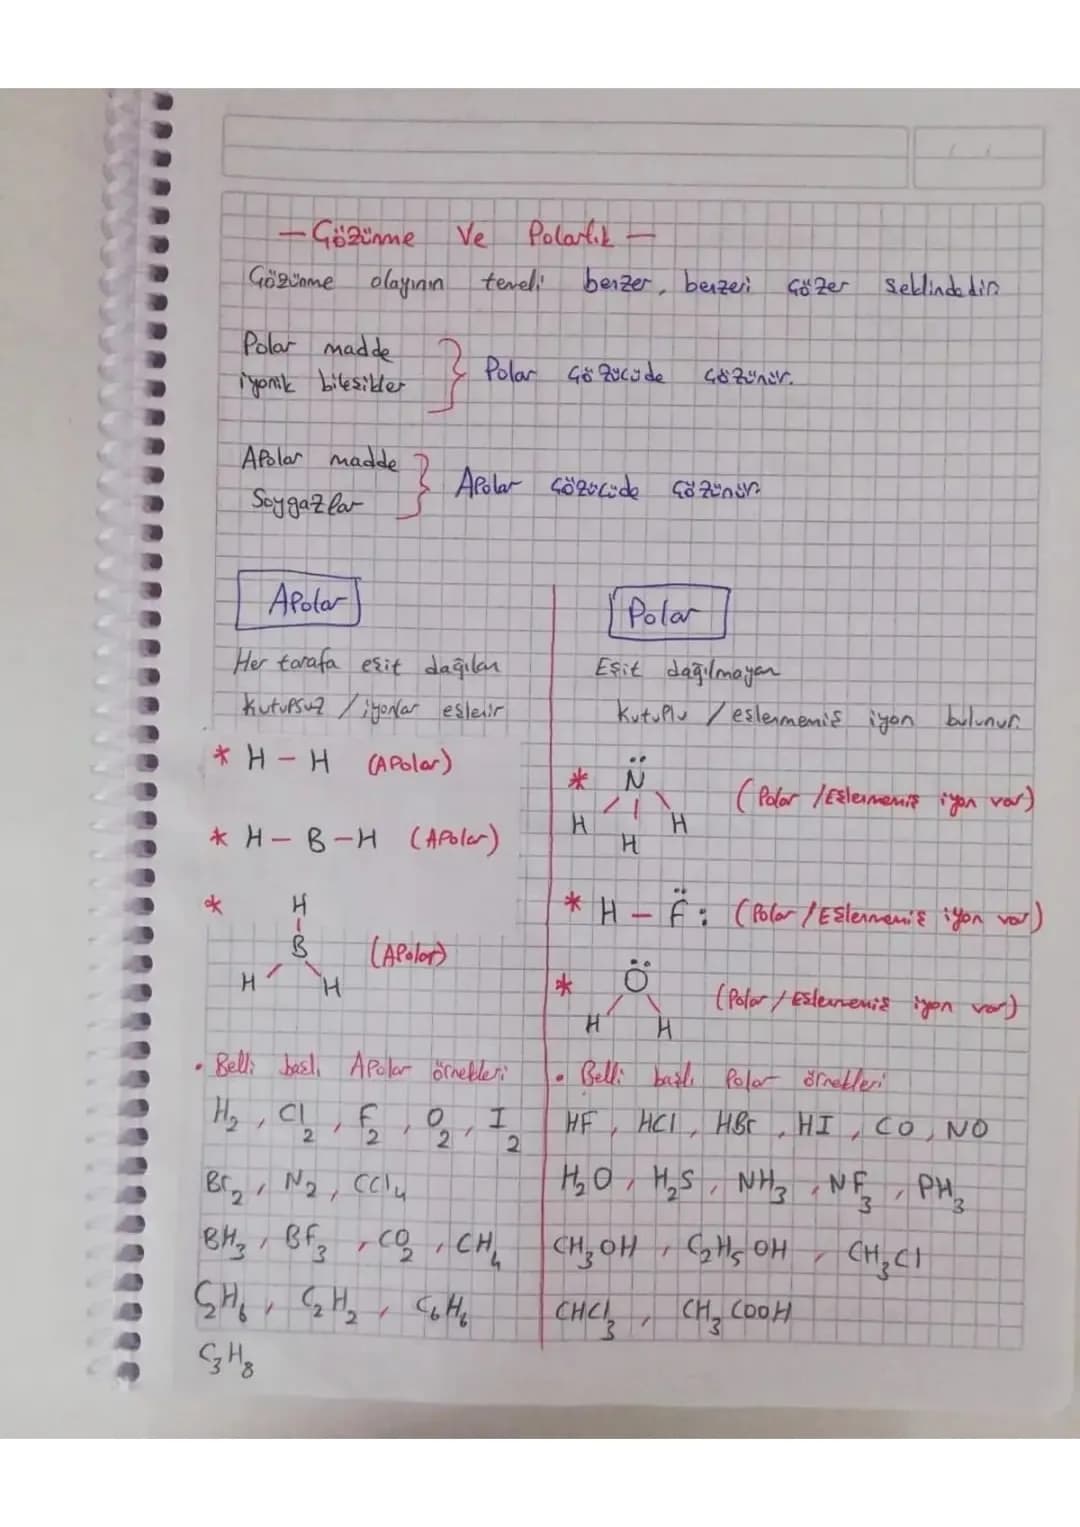 — Çözünme Ve Polarlık —
Çözünme olayının temeli benzer, benzeri çözer şeklindedir.
Polar madde
iyonik bileşikler
Polar çözücüde çözünür.
Apolar madde
Soygazlar
Apolar çözücüde çözünür.
Apolar
Her tarafa eşit dağılan
Kutupsuz / iyonlar eşlenir
* H – H (Apolar)
* H – B – H (Apolar)
* H
B (Apolar)
H H
• Belli başlı Apolar örnekleri
H₂, Cl₂, F₂, O₂, I₂
Br₂, N₂, CCl₄
BH₃, BF₃, CO₂, CH₄
C₂H₆, C₂H₂, C₆H₆
C₃H₈
Polar
Eşit dağılmayan
Kutuplu / eşlenmemiş iyon bulunur.
* N (Polar / Eşlenmemiş iyon var)
H H H
* H – F: (Polar / Eşlenmemiş iyon var)
* O (Polar / Eşlenmemiş iyon var)
H H
• Belli başlı Polar örnekleri
HF, HCl, HBr, HI, CO, NO
H₂O, H₂S, NH₃, NF₃, PH₃
CH₃OH, C₂H₅OH, CH₃Cl
CHCl₃, CH₃COOH